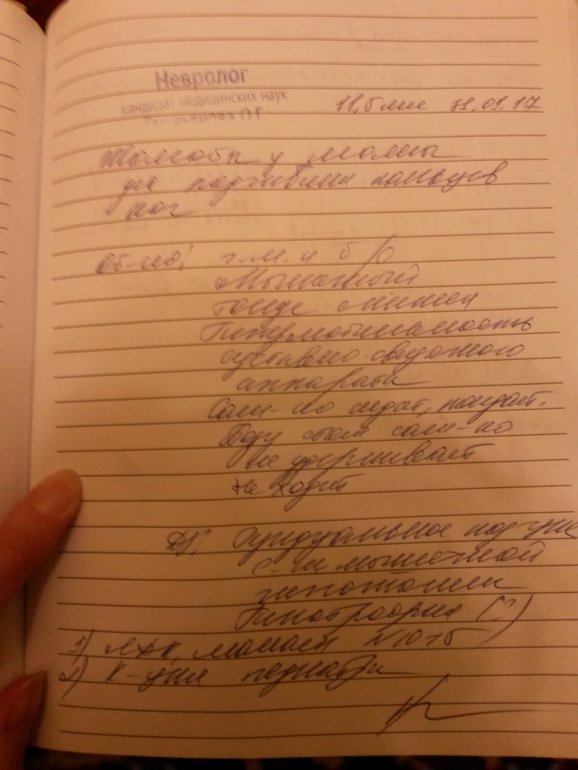 Невролог
кандидат медицинских наук
11,5 мес 31.01.17
Жалобы у мамы
на подгибание пальцев
ног
Об-но: г.м. и б/о
Мышечный
тонус снижен
Гипермобильность
суставно-связочного
аппарата
Сам-но сидит, ползает.
сам-но
не удерживает
не ходит
Ds:
С-м мышечной
гипотонии
Гипотрофия (?)
1) ЛФК, массаж N10-15
2) К-ция педиатра